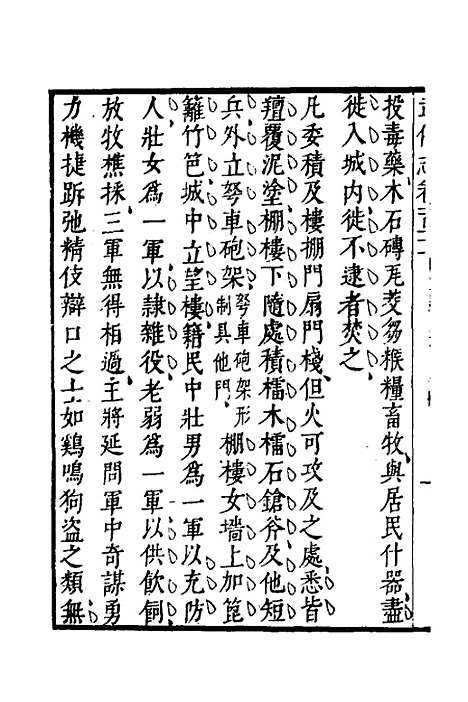 投毒藥木石磚瓦茭芻糇糧畜牧與居民什器盡
徙入城内徙不逮者焚之
凡委積及樓棚門扇門棧但火可攻及之處悉皆
氊覆泥塗棚樓下隨處積檑木檑石鎗斧及他短
兵外立弩車砲架弩車砲架形制具他門棚樓女墻上加箆
籬竹笆城中立望樓籍民中壯男爲一軍以充防
人壯女爲一軍以隷雜役老弱爲一軍以供飲飼
放牧樵採三軍無得相過主將延問軍中奇謀勇
力機捷跅弛精伎辯口之士如鷄鳴狗盗之類無